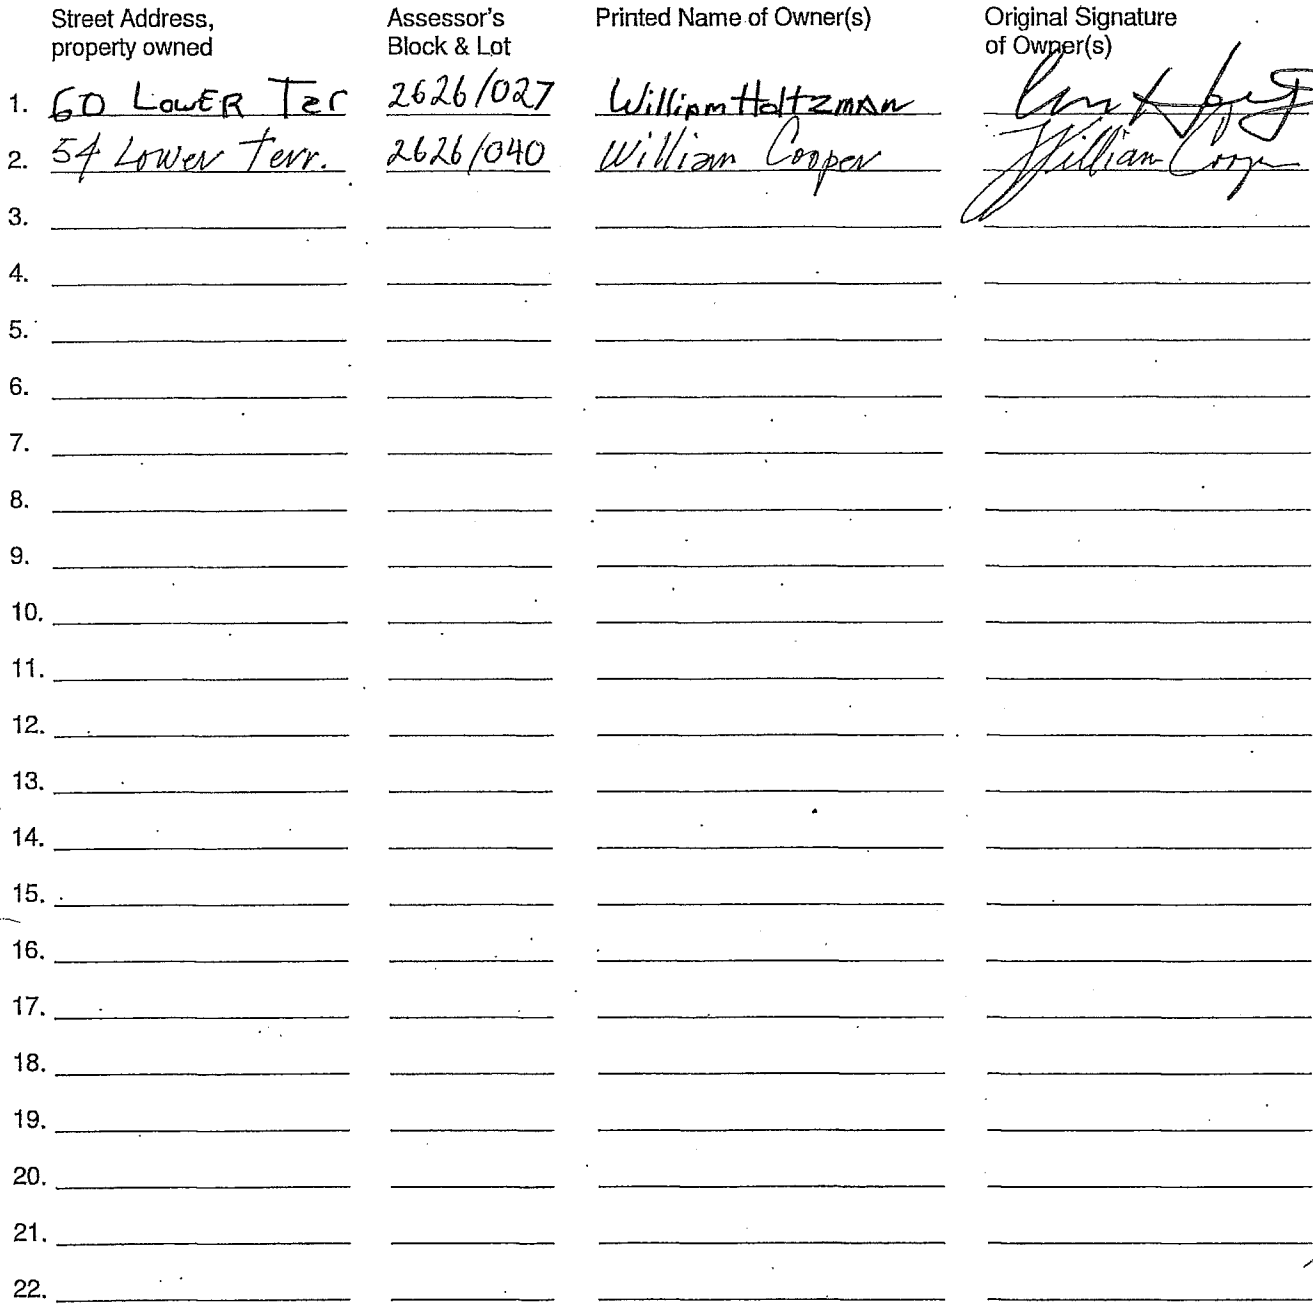 Street Address, property owned Assessor's Block & Lot Printed Name of Owner(s) Original Signature of Owner(s)
1. 60 LOWER Ter 2626/027 William Holtzman
2. 54 Lower Terr. 2626/040 William Cooper William Cooper
3.
4.
5.
6.
7.
8.
9.
10.
11.
12.
13.
14.
15.
16.
17.
18.
19.
20.
21.
22.